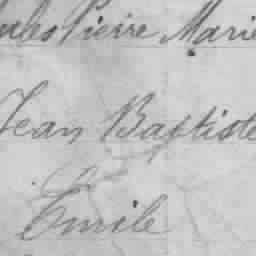 Jules Pierre Marie
Jean Baptiste
Emile